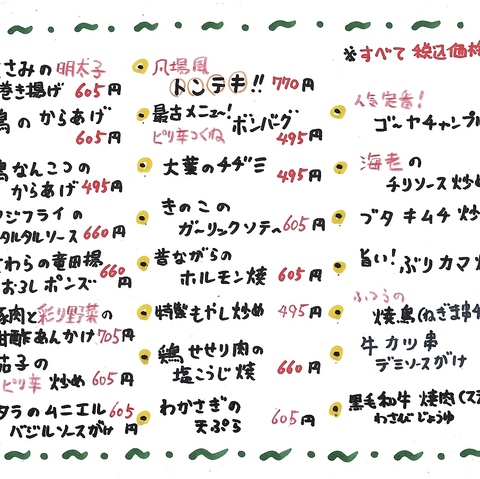 ※すべて税込価格
さみの明太子
巻き揚げ 605円
鶏のからあげ
605円
鶏なんこつの
からあげ 495円
アジフライの
タルタルソース 660円
さわらの竜田揚
おろしポンズ 660円
豚肉と彩り野菜の
甘酢あんかけ 705円
茄子の
ピリ辛炒め 605円
タラのムニエル 605
バジルソースがけ 円
凡場風
トンテキ!! 770円
最古メニュー!ボンバーグ
ピリ辛つくね 495円
大葉のチヂミ
495円
きのこの
ガーリックソテー 605円
昔ながらの
ホルモン焼 605円
特製もやし炒め 495円
鶏せせり肉の
塩こうじ焼 660円
わかさぎの
天ぷら 605円
人気定番!
ゴーヤチャンプル
海老の
チリソース炒め
ブタキムチ炒
旨い!ぶりカマ
ふつうの
焼鳥(ねぎま串
牛カツ串
デミソースがけ
黒毛和牛 焼肉(ス
わさびじょうゆ